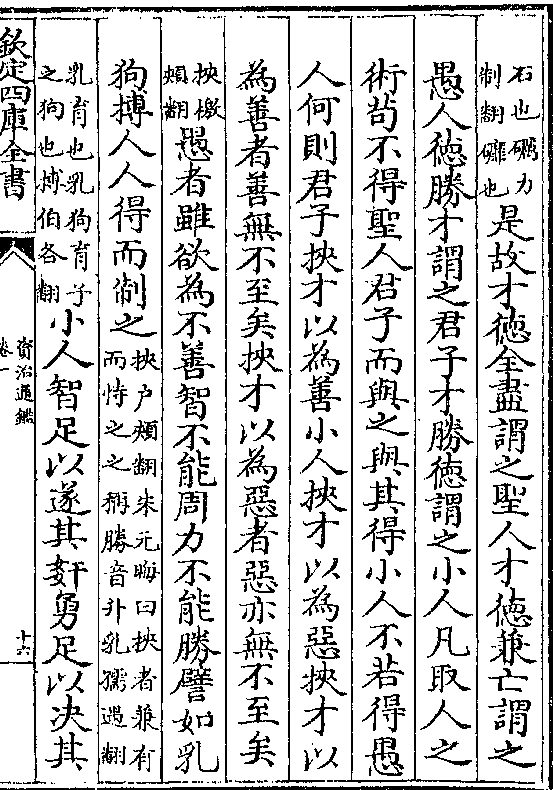 石也礪力
制翻䃺也
是故才徳全盡謂之聖人才徳兼亡謂之
愚人徳勝才謂之君子才勝徳謂之小人凡取人之
術苟不得聖人君子而與之與其得小人不若得愚
人何則君子挾才以為善小人挾才以為惡挾才以
為善者善無不至矣挾才以為惡者惡亦無不至矣
挾檄
頰翻
愚者雖欲為不善智不能周力不能勝譬如乳
狗搏人人得而制之
挾户頰翻朱元晦曰挾者兼有
而恃之之稱勝音升乳孺遇翻
乳育也乳狗育子
之狗也搏伯各翻
小人智足以遂其姧勇足以决其
欽定四庫全書
資治通鑑
卷一
十六